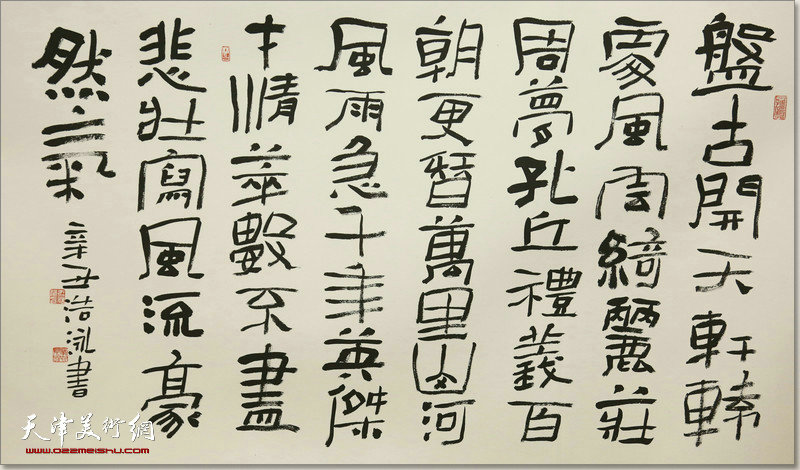 盤古開天軒轅
處風雲綺麗莊
周夢孔丘禮義百
朝更替萬里山河
風雨急千年英傑
才情萃數不盡
悲壯寫風流豪
然氣
辛丑浩泳書
天津美術網
www.022meishu.com